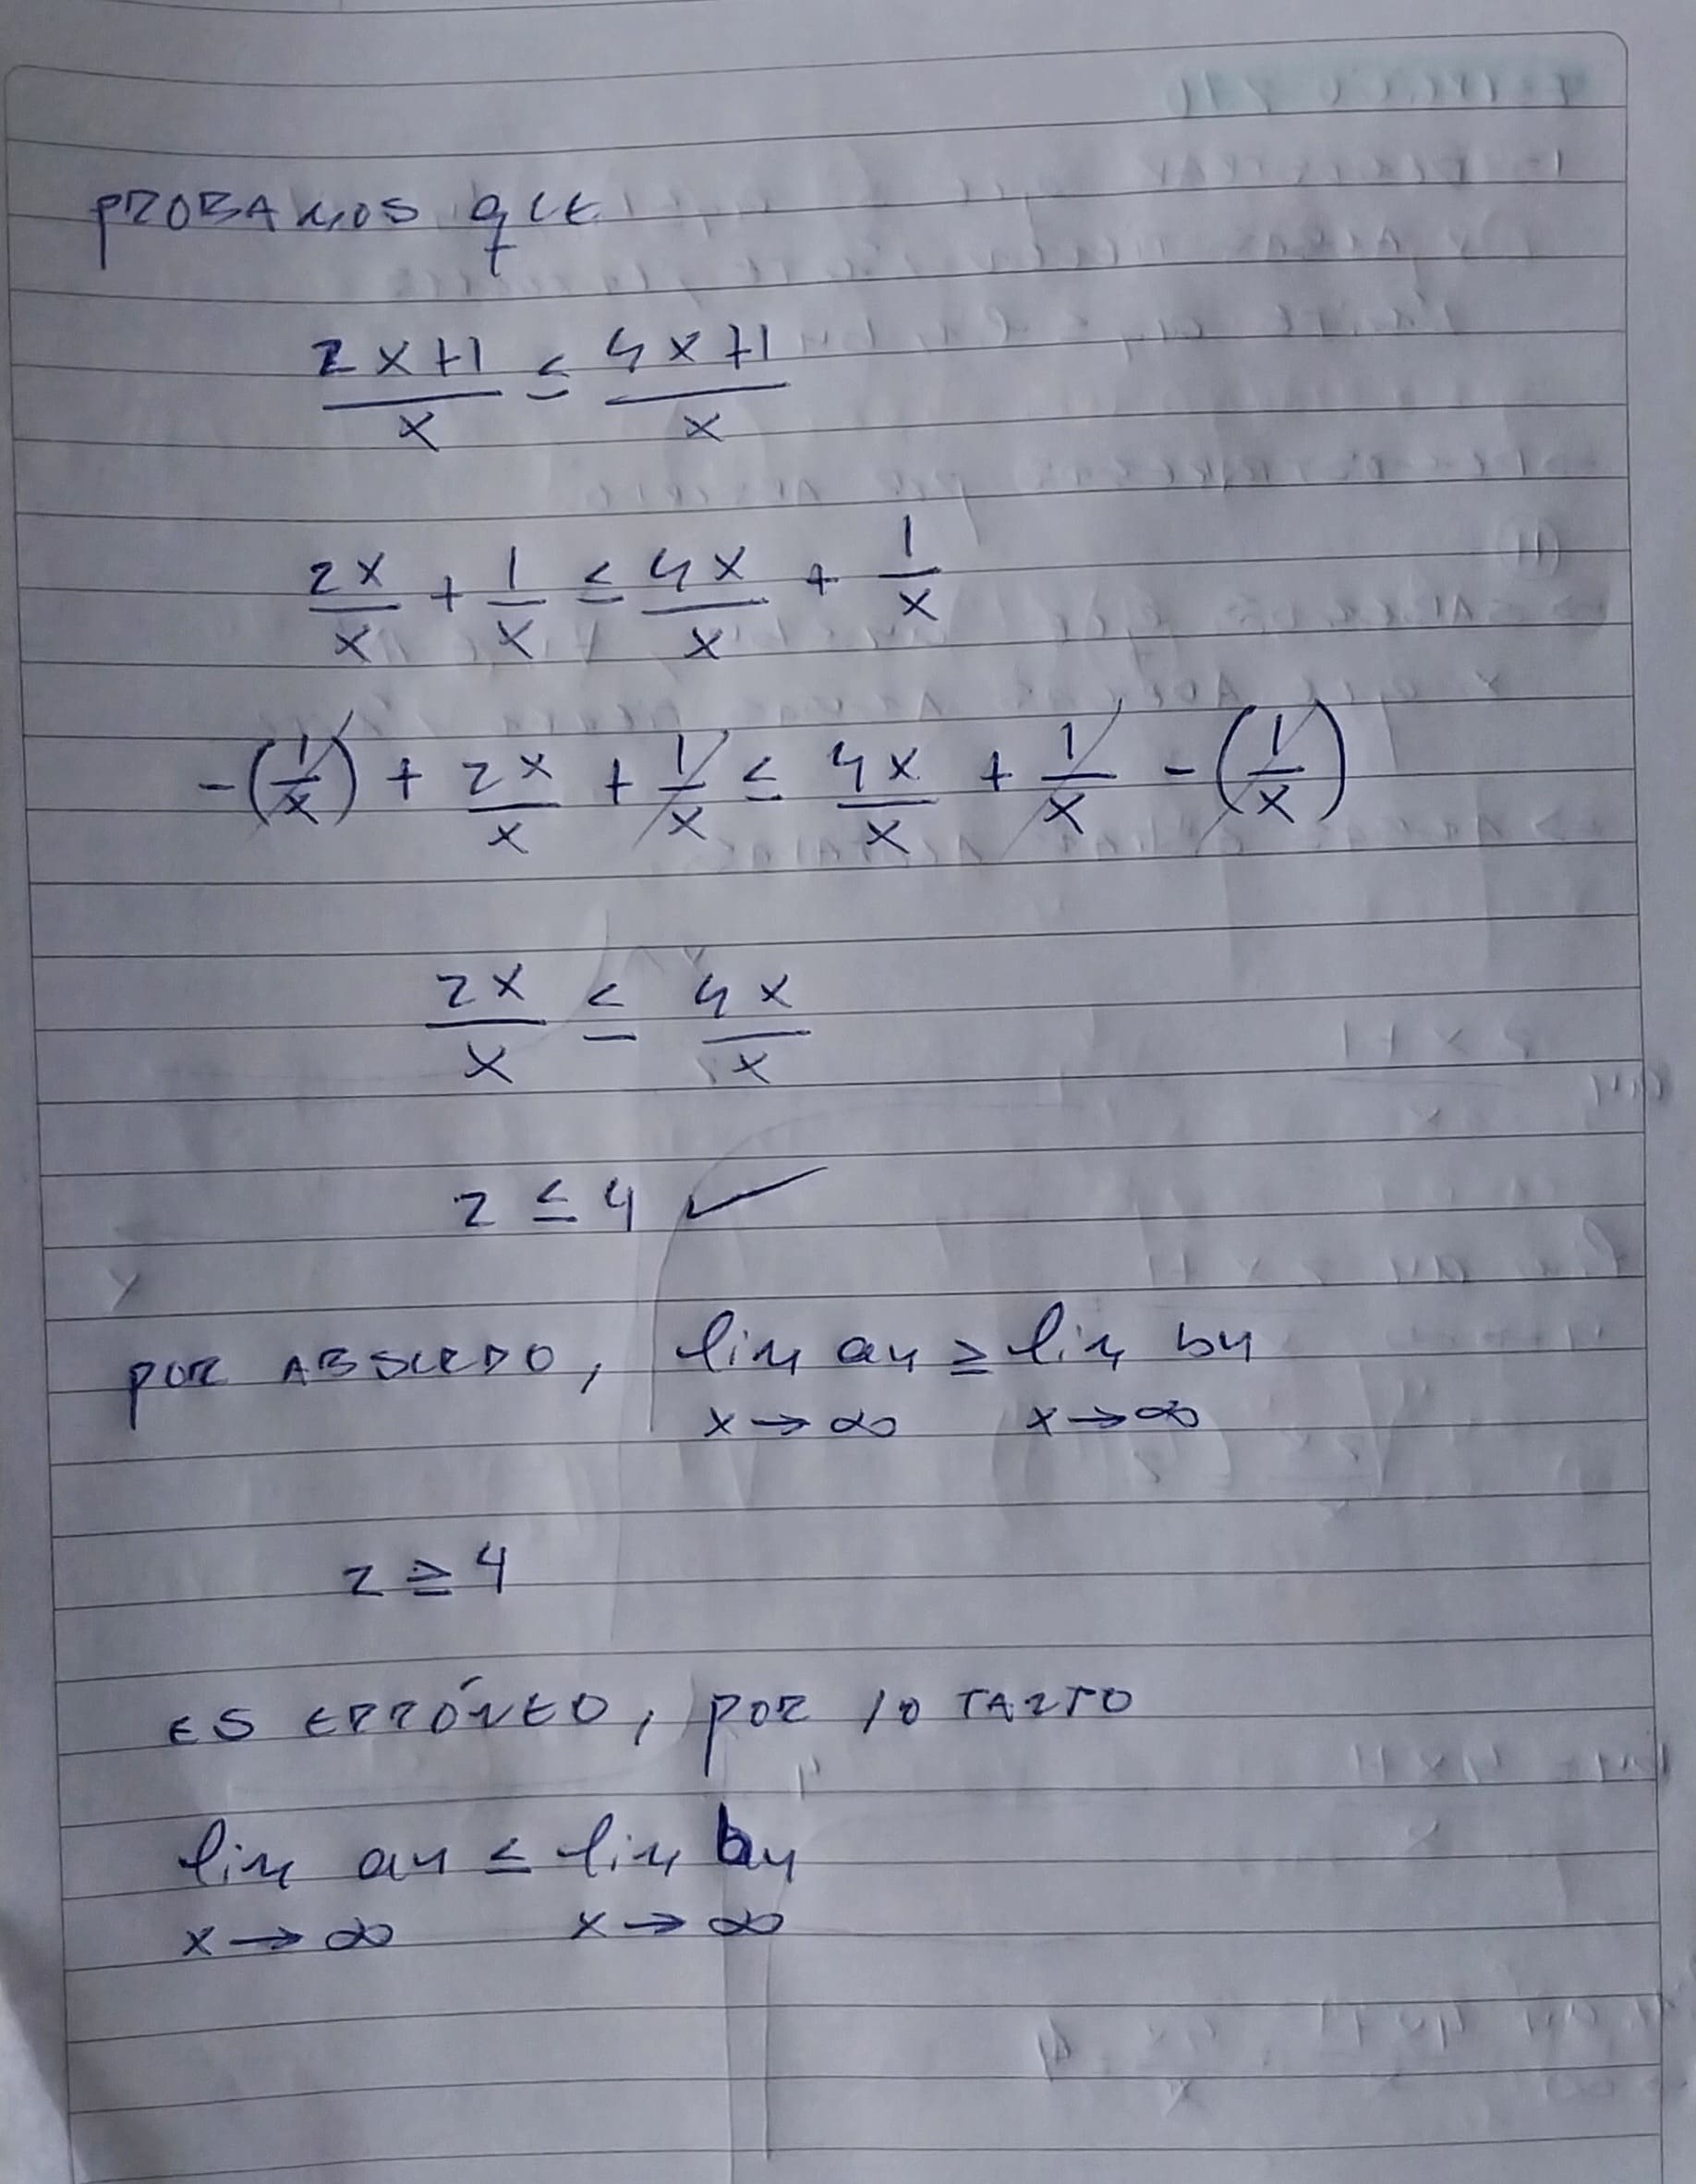 PROBAMOS QUE
2x+1/x ≤ 4x+1/x
2x/x + 1/x ≤ 4x/x + 1/x
-(1/x) + 2x/x + 1/x ≤ 4x/x + 1/x - (1/x)
2x/x ≤ 4x/x
2 ≤ 4 ✓
POR ABSURDO, lim an ≥ lim bn
x → ∞ x → ∞
2 ≥ 4
ES ERRÓNEO, POR lO TANTO
lim an ≤ lim bn
x → ∞ x → ∞